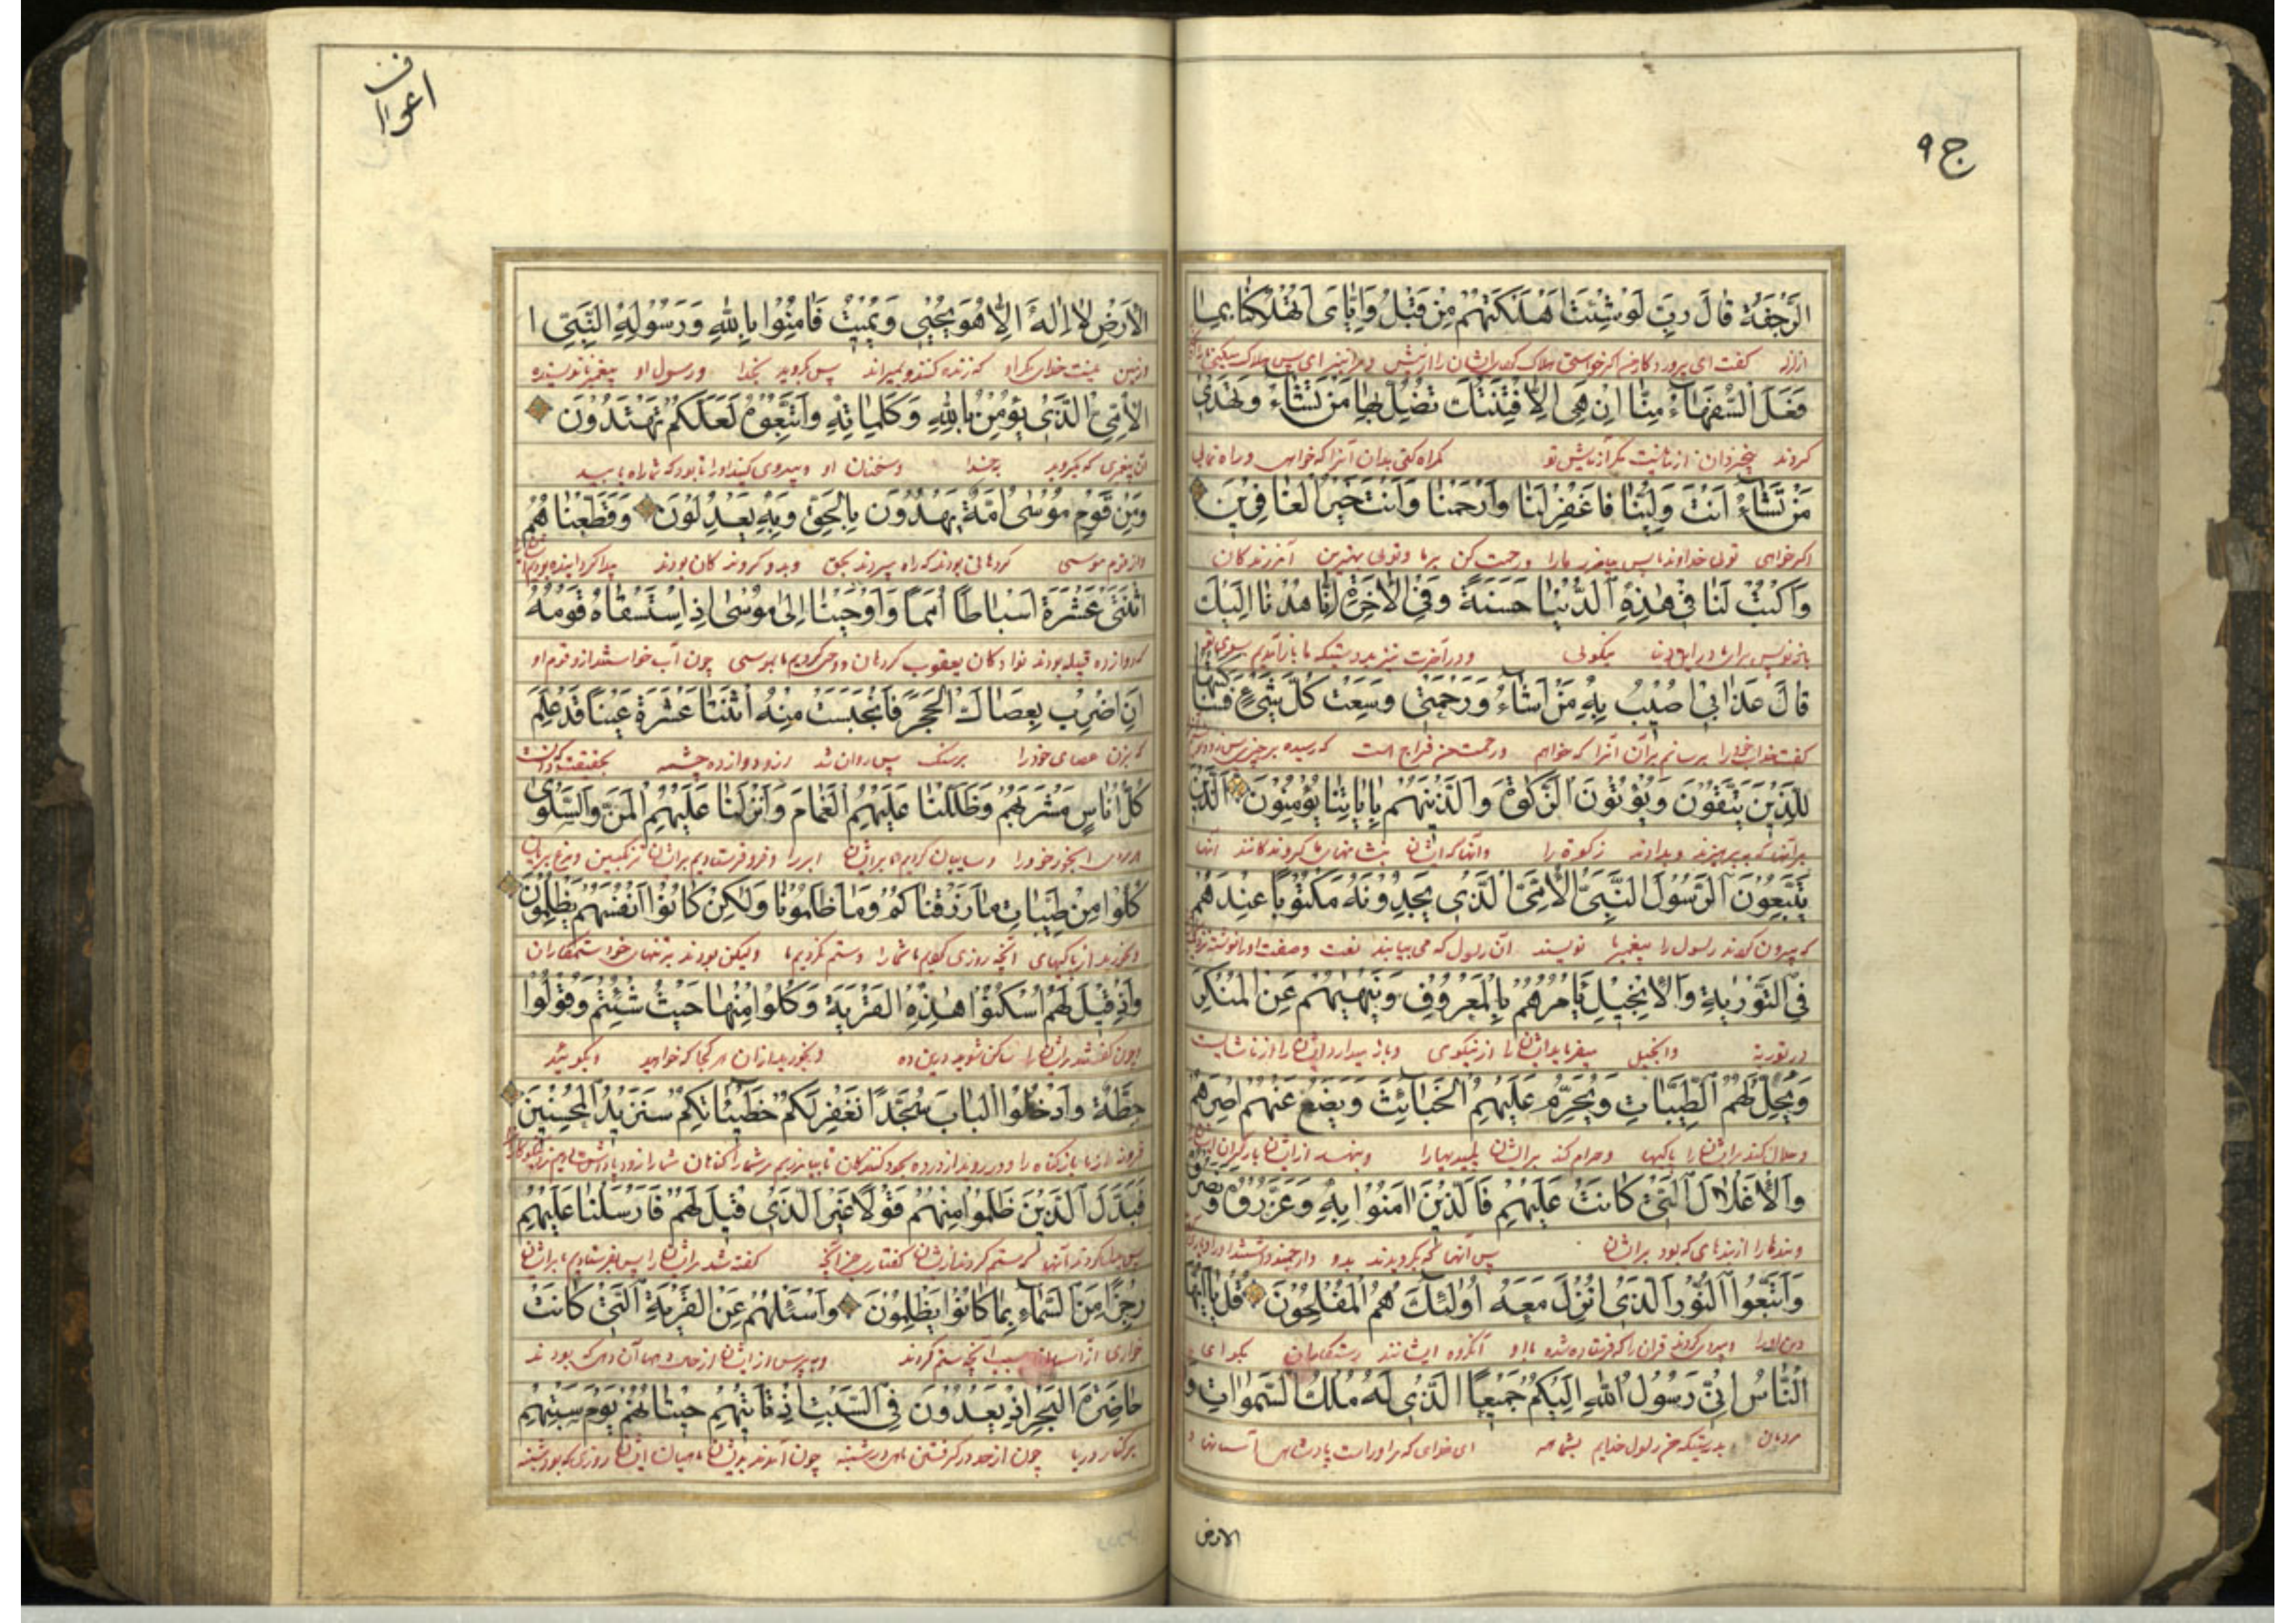 ج ۹
الرَّجْفَةُ قَالَ رَبِّ لَوْ شِئْتَ اَهْلَكْتَهُمْ مِنْ قَبْلُ وَاِيَّايَ اَتُهْلِكُنَا بِمَا
گفت ای پروردگار من اگر خواستی هلاک کردی ایشان را از پیش و مرا نیز ای پس هلاک میکنی ما را
فَعَلَ السُّفَهَاءُ مِنَّا اِنْ هِيَ اِلَّا فِتْنَتُكَ تُضِلُّ بِهَا مَنْ تَشَاءُ وَتَهْدِي
کردند بیخردان از ما نیست مگر آزمایش تو گمراه کنی بدان آنرا که خواهی و راه نمایی
مَنْ تَشَاءُ اَنْتَ وَلِيُّنَا فَاغْفِرْ لَنَا وَارْحَمْنَا وَاَنْتَ خَيْرُ الْغَافِرِينَ
اگر خواهی تویی خداوند ما پس بیامرز ما را و رحمت کن بر ما و تویی بهترین آمرزندگان
وَاكْتُبْ لَنَا فِي هٰذِهِ الدُّنْيَا حَسَنَةً وَفِي الْاٰخِرَةِ اِنَّا هُدْنَا اِلَيْكَ
برای ما در این دنیا نیکویی و در آخرت نیز بدرستیکه ما باز آمدیم بسوی تو
قَالَ عَذَابِي اُصِيبُ بِهِ مَنْ اَشَاءُ وَرَحْمَتِي وَسِعَتْ كُلَّ شَيْءٍ فَسَاَكْتُبُهَا
گفت عذاب خود را برسانم بر آن آنرا که خواهم و رحمت من فراخ است که رسیده بر چیز پس
لِلَّذِينَ يَتَّقُونَ وَيُؤْتُونَ الزَّكٰوةَ وَالَّذِينَ هُمْ بِاٰيَاتِنَا يُؤْمِنُونَ الَّذِينَ
برای آنها که بپرهیزند و بدادند زکوة را و آنها که ایشان بنشانهای ما گروندگانند آنها
يَتَّبِعُونَ الرَّسُولَ النَّبِيَّ الْاُمِّيَّ الَّذِي يَجِدُونَهُ مَكْتُوبًا عِنْدَهُمْ
که پیروی کردند رسول را پیغمبر نا نویسنده آن رسول که می‌یابند نعت و صفت او را نوشته نزدیک
فِي التَّوْرٰيةِ وَالْاِنْجِيلِ يَاْمُرُهُمْ بِالْمَعْرُوفِ وَيَنْهٰيهُمْ عَنِ الْمُنْكَرِ
در توریة و انجیل میفرماید ایشان را از نیکویی و باز میدارد ایشان را از ناشایست
وَيُحِلُّ لَهُمُ الطَّيِّبَاتِ وَيُحَرِّمُ عَلَيْهِمُ الْخَبَائِثَ وَيَضَعُ عَنْهُمْ اِصْرَهُمْ
و حلال کند برایشان را پاکیها و حرام کند برایشان پلیدیها را و بنهد از ایشان بار گران
وَالْاَغْلَالَ الَّتِي كَانَتْ عَلَيْهِمْ فَالَّذِينَ اٰمَنُوا بِهِ وَعَزَّرُوهُ وَنَصَرُوهُ
و بندها را از بندهای که بود برایشان پس آنها که بگرویدند بدو و ارجمند داشتند او را
وَاتَّبَعُوا النُّورَ الَّذِي اُنْزِلَ مَعَهُ اُولٰئِكَ هُمُ الْمُفْلِحُونَ قُلْ يَا اَيُّهَا
و پیروی کردند قرآن را که فرستاده شده با او آن گروه ایشانند رستگاران بگو ای
النَّاسُ اِنِّي رَسُولُ اللهِ اِلَيْكُمْ جَمِيعًا الَّذِي لَهُ مُلْكُ السَّمٰوَاتِ وَ
مردمان بدرستیکه من رسول خدایم بشما همه آن خدای که مر او راست پادشاهی آسمانها و
الارض
اعراف
الْاَرْضِ لَا اِلٰهَ اِلَّا هُوَ يُحْيِي وَيُمِيتُ فَاٰمِنُوا بِاللهِ وَرَسُولِهِ النَّبِيِّ ا
و زمین نیست خدای مگر او که زنده کند و بمیراند پس بگروید بخدا و رسول او پیغمبر نا نویسنده
الْاُمِّيِّ الَّذِي يُؤْمِنُ بِاللهِ وَكَلِمَاتِهِ وَاتَّبِعُوهُ لَعَلَّكُمْ تَهْتَدُونَ
آن پیغمبری که بگرود بخدا و سخنان او و پیروی کنید او را تا بود که شما راه یابید
وَمِنْ قَوْمِ مُوسٰى اُمَّةٌ يَهْدُونَ بِالْحَقِّ وَبِهِ يَعْدِلُونَ وَقَطَّعْنَاهُمُ
و از قوم موسی گروهانی بودند که راه بحق و بدو بودند
اثْنَتَيْ عَشْرَةَ اَسْبَاطًا اُمَمًا وَاَوْحَيْنَا اِلٰى مُوسٰى اِذِ اسْتَسْقَاهُ قَوْمُهُ
که دوازده قبیله بودند نوادگان یعقوب گروهان و وحی کردیم ما بموسی چون آب خواستند از و قوم او
اَنِ اضْرِبْ بِعَصَاكَ الْحَجَرَ فَانْبَجَسَتْ مِنْهُ اثْنَتَا عَشْرَةَ عَيْنًا قَدْ عَلِمَ
که بزن عصای خود را بر سنگ پس روان شد ازو دوازده چشمه بحقیقت
كُلُّ اُنَاسٍ مَشْرَبَهُمْ وَظَلَّلْنَا عَلَيْهِمُ الْغَمَامَ وَاَنْزَلْنَا عَلَيْهِمُ الْمَنَّ وَالسَّلْوٰى
آبخور خود را و سایبان کردیم ما برایشان ابر را و فرو فرستادیم برایشان ترنگبین و مرغ بریان
كُلُوا مِنْ طَيِّبَاتِ مَا رَزَقْنَاكُمْ وَمَا ظَلَمُونَا وَلٰكِنْ كَانُوا اَنْفُسَهُمْ يَظْلِمُونَ
و بخورید از پاکیهای آنچه روزی کردیم ما شما را و ستم نکردیم ما ولیکن بودند بر تنهای خود ستمکاران
وَاِذْ قِيلَ لَهُمُ اسْكُنُوا هٰذِهِ الْقَرْيَةَ وَكُلُوا مِنْهَا حَيْثُ شِئْتُمْ وَقُولُوا
و چون گفته شد مر ایشان را ساکن شوید درین ده و بخورید از آن هر کجا که خواهید و بگوئید
حِطَّةٌ وَادْخُلُوا الْبَابَ سُجَّدًا نَغْفِرْ لَكُمْ خَطِيئَاتِكُمْ سَنَزِيدُ الْمُحْسِنِينَ
فَبَدَّلَ الَّذِينَ ظَلَمُوا مِنْهُمْ قَوْلًا غَيْرَ الَّذِي قِيلَ لَهُمْ فَاَرْسَلْنَا عَلَيْهِمْ
پس بدل کردند آنها که ستم کردند از ایشان گفتاری جز آنچه گفته شد مر ایشان را پس بفرستادیم ما برایشان
رِجْزًا مِنَ السَّمَاءِ بِمَا كَانُوا يَظْلِمُونَ وَاسْئَلْهُمْ عَنِ الْقَرْيَةِ الَّتِي كَانَتْ
خواری از آسمان بسبب آنچه ستم کردند و بپرس از ایشان از آن دهی که بودند
حَاضِرَةَ الْبَحْرِ اِذْ يَعْدُونَ فِي السَّبْتِ اِذْ تَاْتِيهِمْ حِيتَانُهُمْ يَوْمَ سَبْتِهِمْ
بر کنار دریا چون از حد در گرفتن ماهی در شنبه چون آمدند بدیشان ماهیان ایشان روزی که بود شنبه